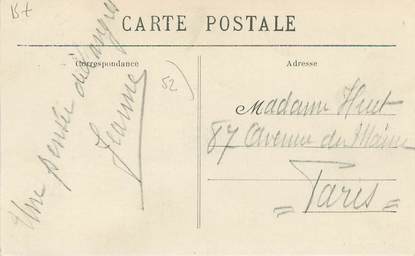 15+
CARTE POSTALE
Correspondance
Adresse
Une pensée de Langres
Jeanne
52
Madame Huet
87 Avenue du Maine
Paris